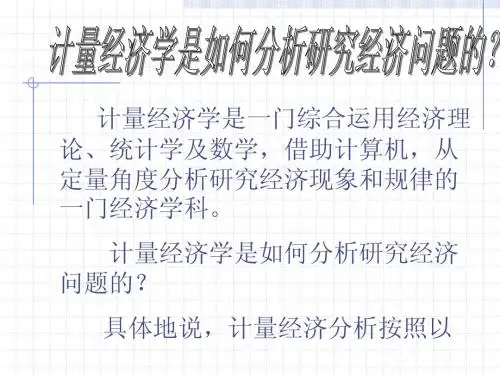 计量经济学是如何分析研究经济问题的？
计量经济学是一门综合运用经济理
论、统计学及数学，借助计算机，从
定量角度分析研究经济现象和规律的
一门经济学科。
计量经济学是如何分析研究经济
问题的？
具体地说，计量经济分析按照以